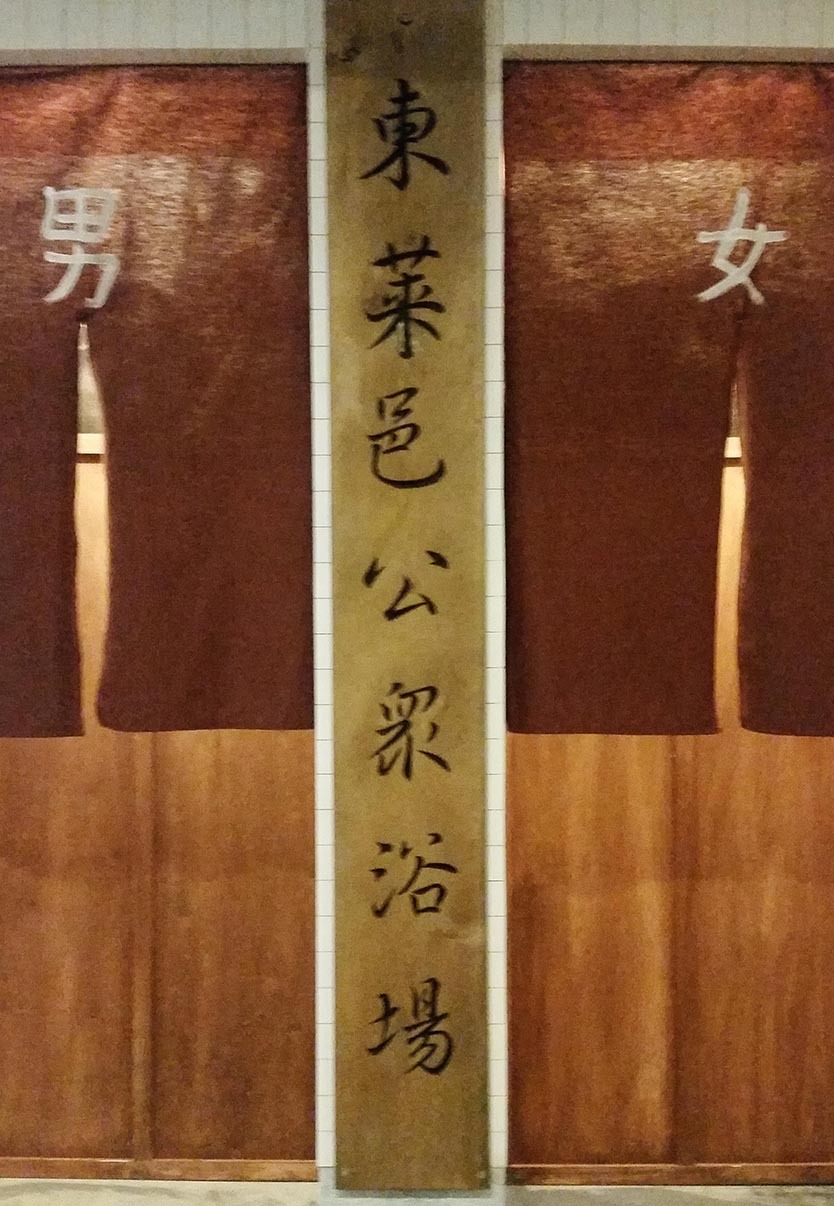 男
東萊邑公衆浴場
女